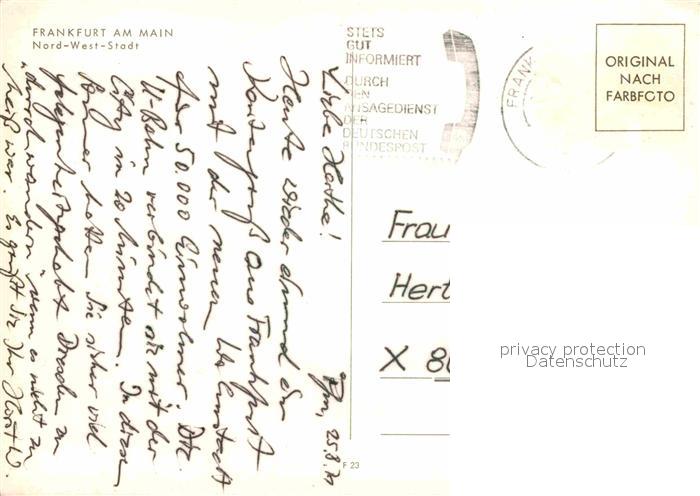 FRANKFURT AM MAIN
Nord-West-Stadt
STETS
GUT
INFORMIERT
DURCH
DEN
ANSAGEDIENST
DER
DEUTSCHEN
BUNDESPOST
FRANK
ORIGINAL
NACH
FARBFOTO
25.8.71
Liebe Hertha!
Heute wieder einmal ein
Kartengruß aus Frankfurt
mit der neuen
für 50.000 Einwohner. Die
U-Bahn verbindet sie mit der
City in 20 Minuten. In diesem
Sommer hatten Sie sicher viel
Gelegenheit, Dresden zu
"durchwandern", wenn es nicht zu
heiß war. Es grüßt Sie Ihr Horst W.
Frau
Hert
X 80
F 23
privacy protection
Datenschutz